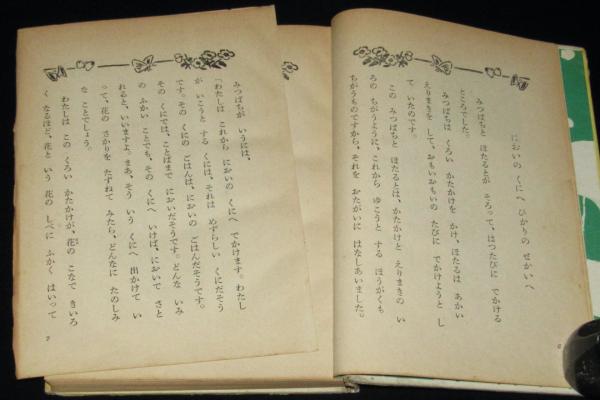 においの くにへ ひかりの せかいへ
みつばちと ほたるとが そろって、はつたびに でかける
ところでした。
みつばちは くろい かたかけを かけ、ほたるは あかい
えりまきを して、おもいおもいの たびに でかけようと し
て、いたのです。
この みつばちと ほたるとは、かたかけと えりまきの い
ろの ちがうように、これから ゆこうと する ほうがくも
ちがうものですから、それを おたがいに はなしあいました。
6
みつばちが いうには、
「わたしは これから においの くにへ でかけます。わたし
が いこうと する くには、それは めずらしい くにだそう
です。その くにの ごはんは、においの ごはんだそうです。
その くにでは、ことばまで においだそうです。どんな いみ
の ふかい ことでも、その くにへ いけば、においで さと
れると、いいますよ。まあ、そう いう くにへ 出かけて い
って、花の さかりを たずねて みたら、どんなに たのしみ
な ことでしょう。
わたしは この くろい かたかけが、花の こなで きいろ
く なるほど、花と いう 花の しべに ふかく はいって
7